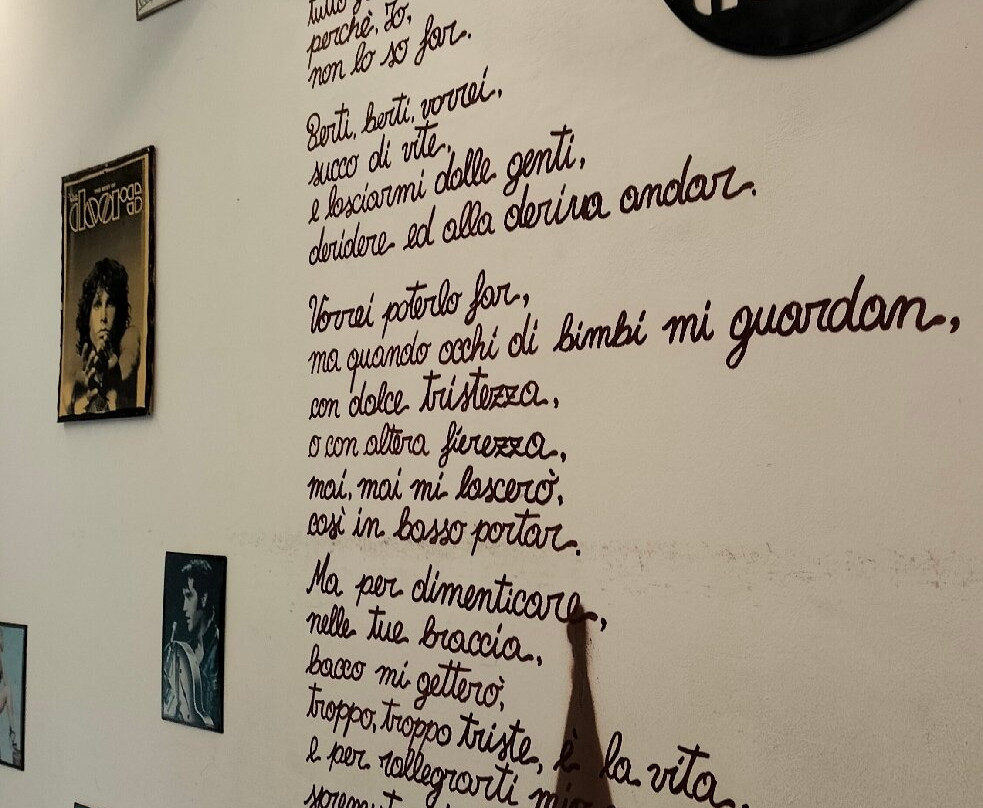 THE BEST OF
the doors
perchè, Io,
non lo so far.
Berti, berti, vorrei,
succo di vite,
e lasciarmi dalle genti,
deridere ed alla deriva andar.
Vorrei poterlo far,
ma quando occhi di bimbi mi guardan,
con dolce tristezza,
o con altera fierezza,
mai, mai mi lascerò,
così in basso portar.
Ma per dimenticare,
nelle tue braccia,
bacco mi getterò,
troppo, troppo triste, è la vita,
e per rallegrarti